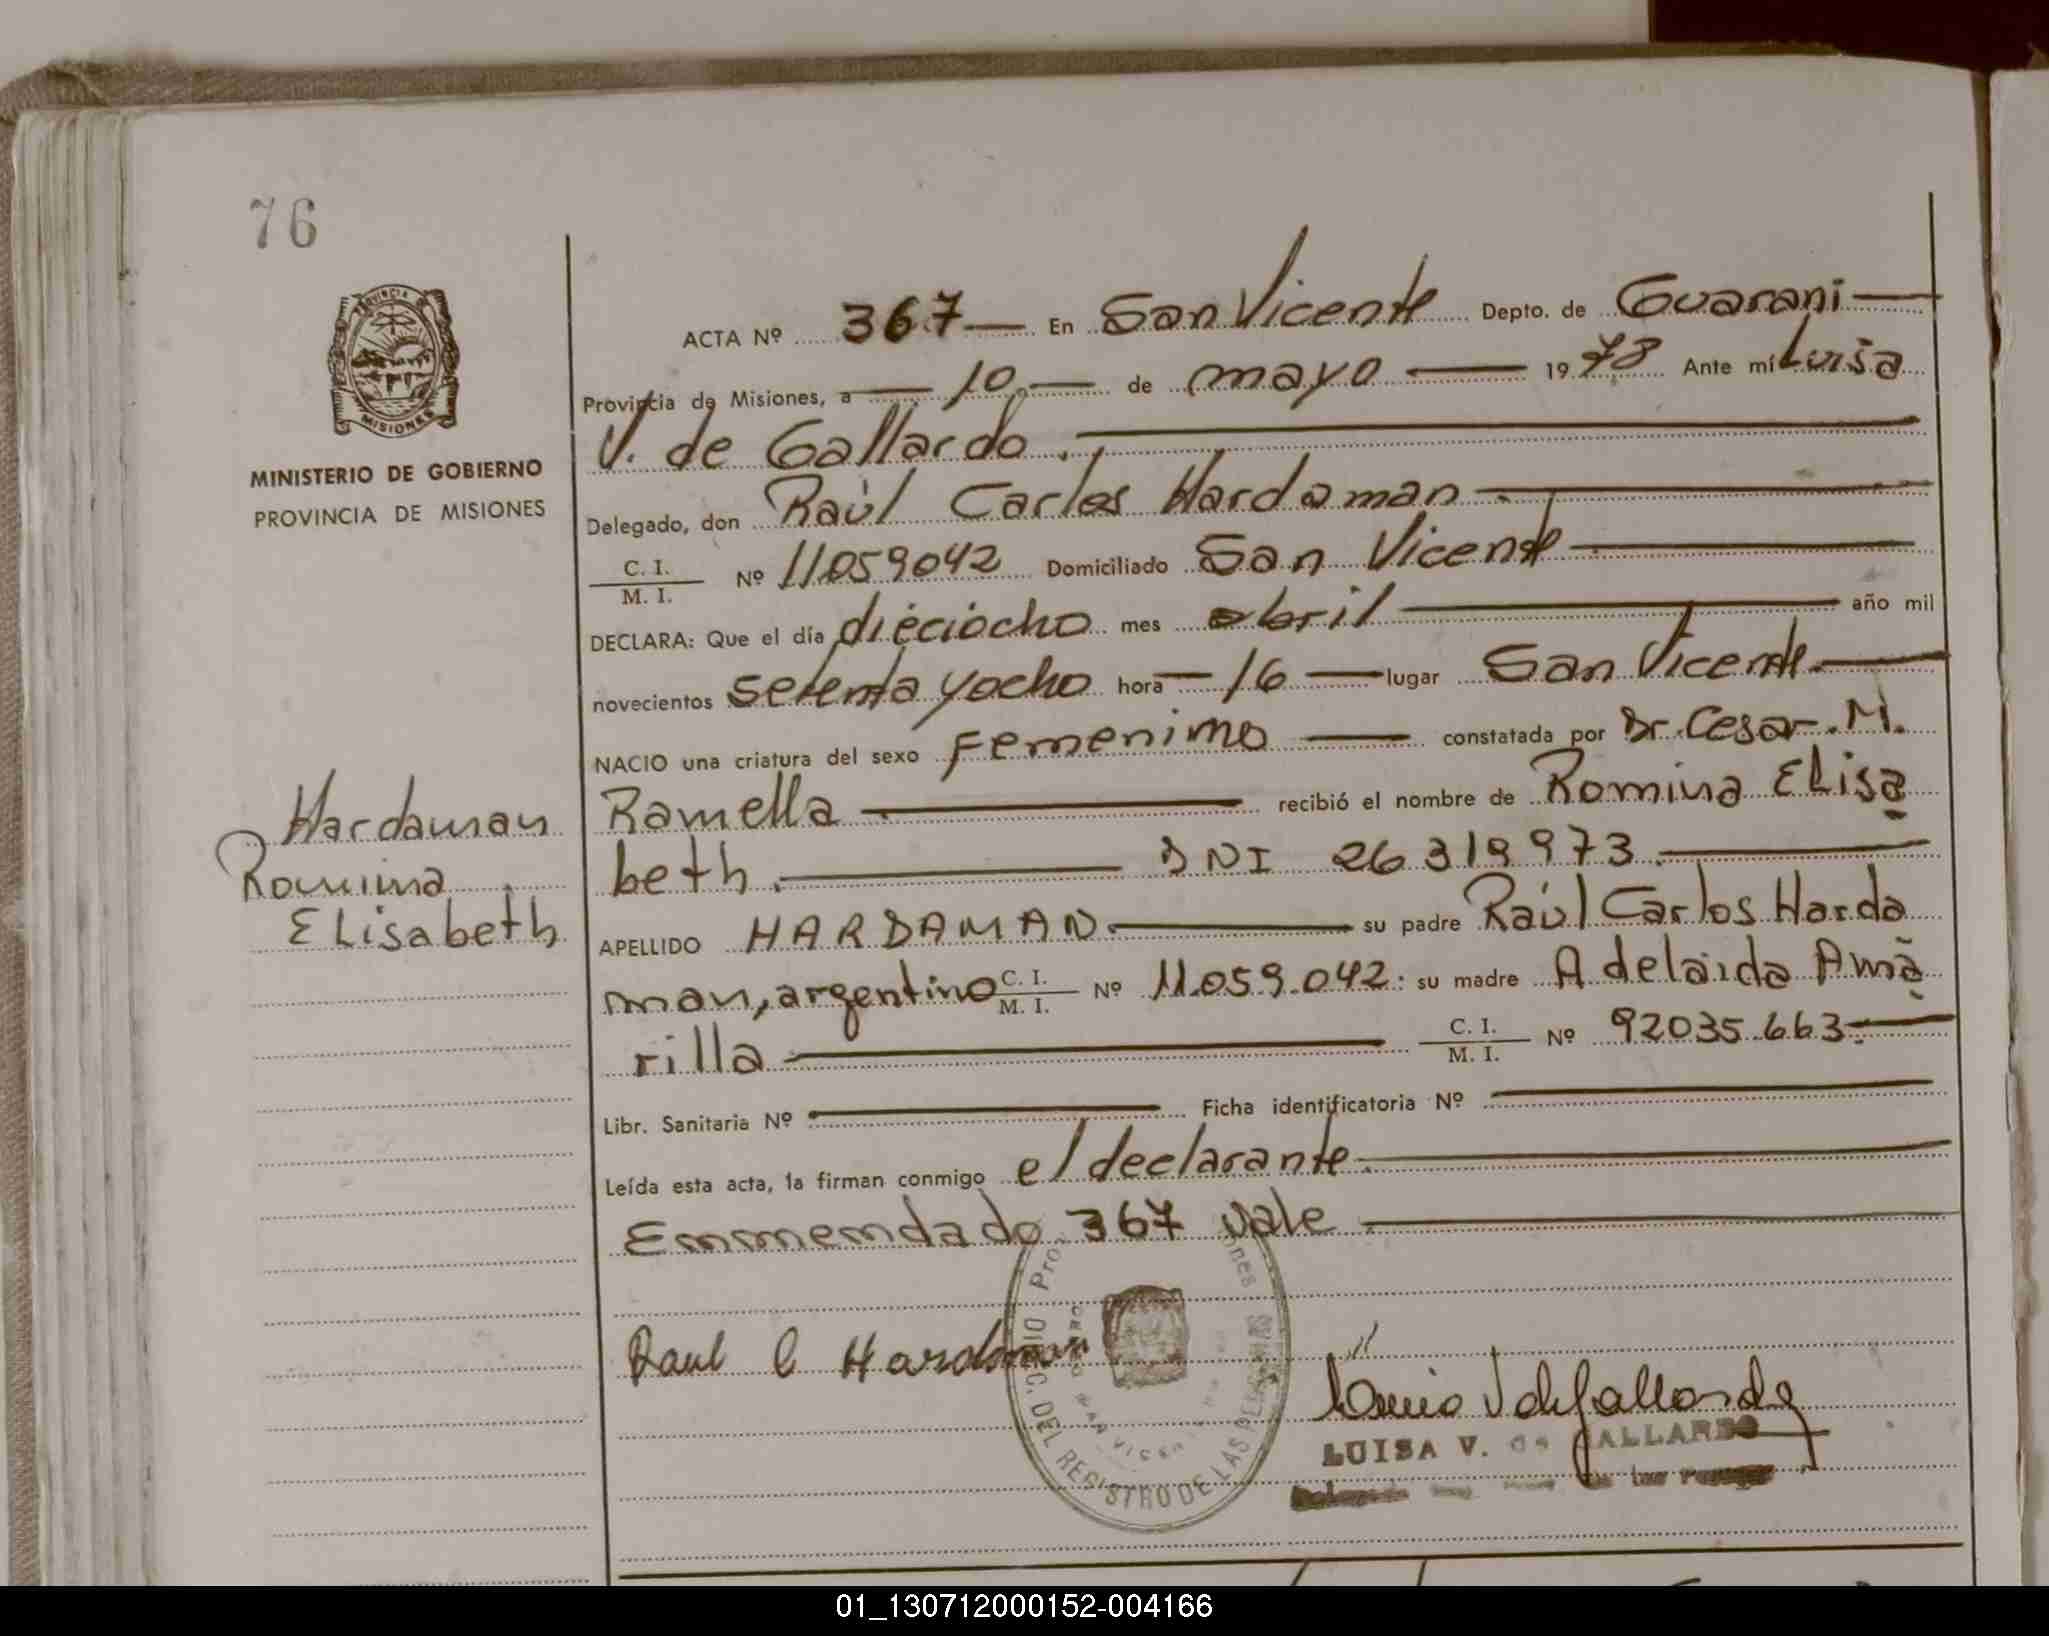 76
PROVINCIA DE
MISIONES
MINISTERIO DE GOBIERNO
PROVINCIA DE MISIONES
Hardaman
Romina
Elisabeth
ACTA Nº 367 — En San Vicente Depto. de Guarani —
Provincia de Misiones, a — 10 — de mayo — 1978 Ante mi Luisa
V. de Gallardo.
Delegado, don Raúl Carlos Hardaman
C. I. / M. I. Nº 11059042 Domiciliado San Vicente —
DECLARA: Que el día dieciocho mes abril — año mil
novecientos setenta y ocho hora — 16 — lugar San Vicente —
NACIO una criatura del sexo Femenino — constatada por Dr. Cesar M.
Ramella — recibió el nombre de Romina Elisa
beth. — DNI 26 319 973. —
APELLIDO HARDAMAN. — su padre Raúl Carlos Harda
man, argentino C. I. / M. I. Nº 11.059.042: su madre Adelaida Ama
rilla — C. I. / M. I. Nº 92035.663 —
Libr. Sanitaria Nº — Ficha identificatoria Nº —
Leída esta acta, la firman conmigo el declarante. —
Emmendado 367 vale —
Raul C Hardaman
DIREC. DEL REGISTRO DE LAS PERSONAS
Luisa V de Gallardo
LUISA V. de GALLARDO
01_130712000152-004166